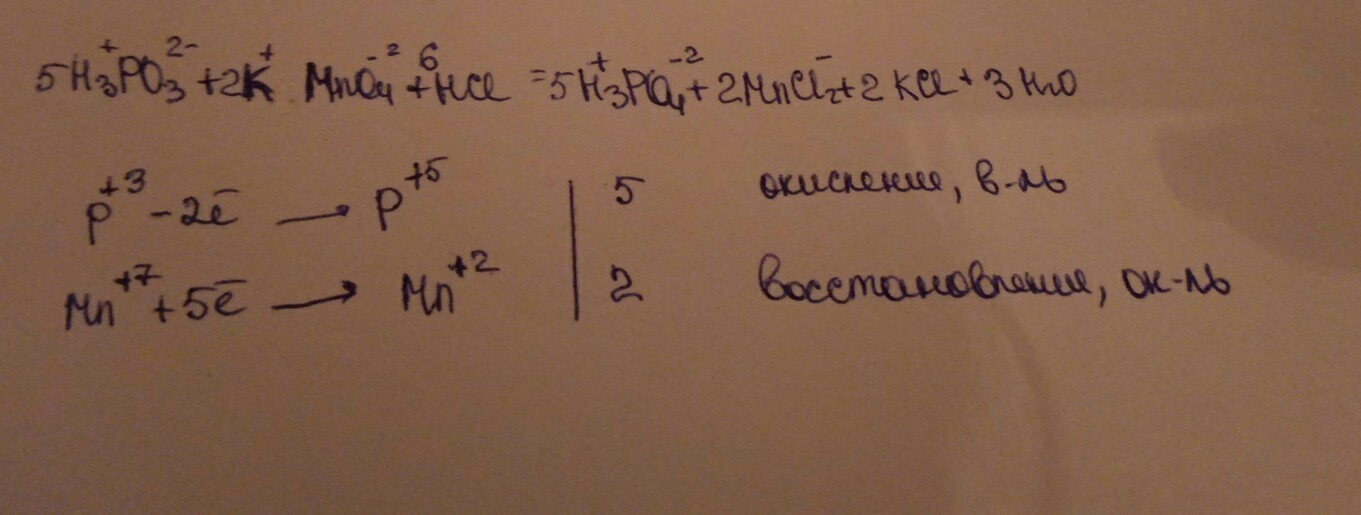 5H₃⁺PO₃²⁻ + 2K⁺MnO₄⁻² + 6HCl = 5H₃⁺PO₄⁻² + 2MnCl₂⁻ + 2KCl + 3H₂O
P⁺³ - 2ē → P⁺⁵ | 5 окисление, в-ль
Mn⁺⁷ + 5ē → Mn⁺² | 2 восстановление, ок-ль